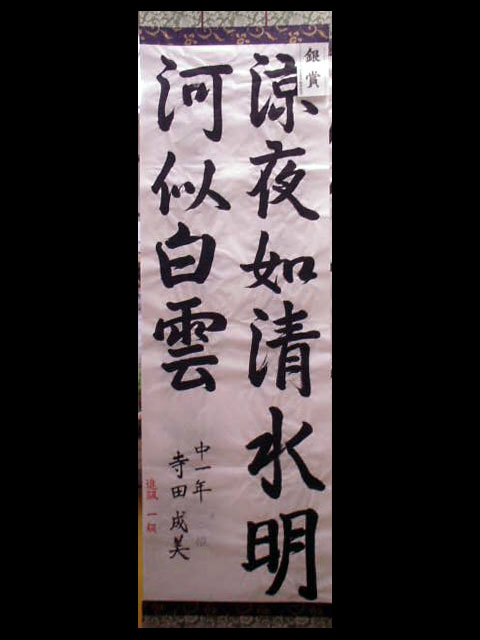 銀賞
涼夜如清水明
河似白雲
中一年
寺田成美
一級